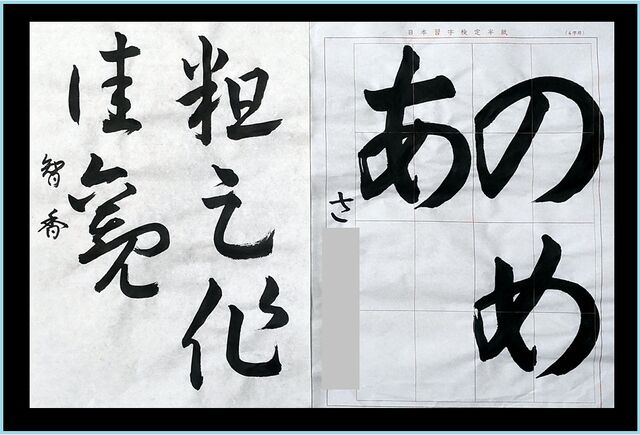 日本習字検定半紙
のめ
あ
さ
粗之
佳
智香